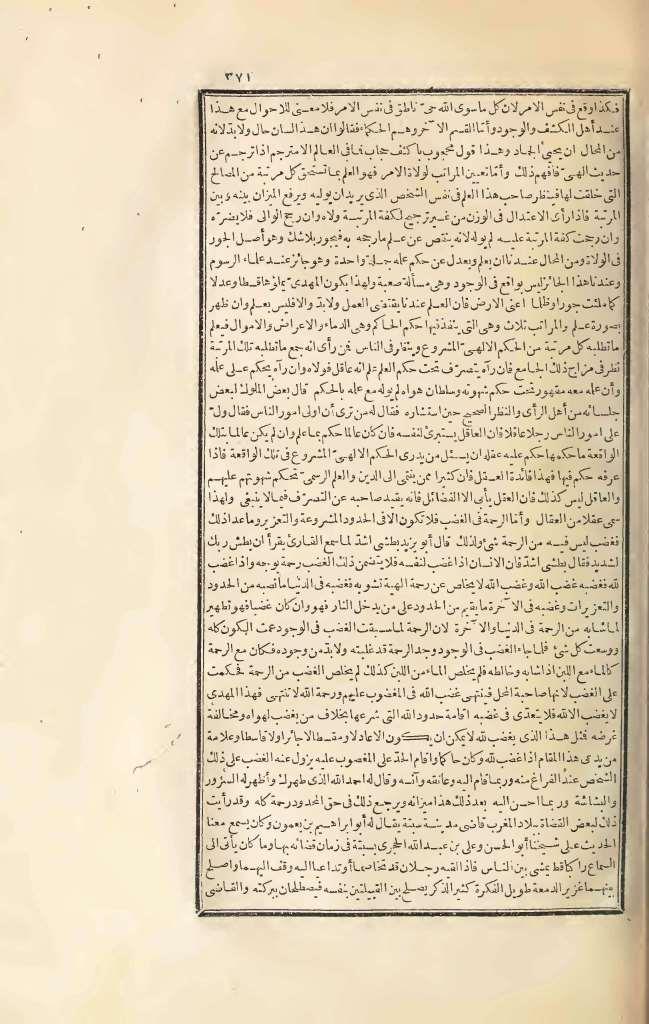 ٣٧١
فكذا وقع فى نفس الامر لان كل ما سوى الله حىّ ناطق فى نفس الامر فلا معنى للاحوال مع هذا
عند أهل الكشف والوجود وأمّا القسم الآخر وهم الحكماء فقالوا ان هذا لسان حال ولا بد لانه
من المحال ان يحيى الجاد وهذا قول محجوب باكثف حجاب فما فى العالم الا مترجم اذا ترجم عن
حديث الهىّ فافهم ذلك وأمّا تعيين المراتب لولاة الامر فهو العلم بما تستحق كل مرتبة من المصالح
التى خلقت لها فينظر صاحب هذا العلم فى نفس الشخص الذى يريد ان يوليه ويرفع الميزان بينه وبين
المرتبة فاذا رأى الاعتدال فى الوزن من غير ترجيح لكفة المرتبة ولاه وان رجح الوالى فلا يضرّه
وان رجحت كفة المرتبة عليه لم يوله لانه ينقص عن علم ما رجحه به فيجور بلا شك وهو أصل الجور
فى الولاة ومن المحال عندنا ان يعلم ويعدل عن حكم علمه جملة واحدة وهو جائز عند علماء الرسوم
وعندنا هذا الجائز ليس بواقع فى الوجود وهى مسألة صعبة ولهذا يكون المهدىّ يملؤها قسطا وعدلا
كما ملئت جورا وظلما اعنى الارض فان العلم عندنا يقتضى العمل ولا بدّ والا فليس بعلم وان ظهر
بصورة علم والمراتب ثلاث وهى التى ينفذ فيها حكم الحاكم وهى الدماء والاعراض والاموال فيعلم
ما تطلبه كل مرتبة من الحكم الالهىّ المشروع وينظر فى الناس فمن رأى انه جمع ما تطلبه تلك المرتبة
نظر فى مزاج ذلك الجامع فان رآه يتصرّف تحت حكم العلم علم انه عاقل فولاه وان رآه يحكم على علمه
وأن علمه معه مقهور تحت حكم شهوته وسلطان هواه لم يوله مع علمه بالحكم قال بعض الملوك لبعض
جلسائه من أهل الرأى والنظر الصحيح حين استشاره فقال له من ترى أن اولى امور الناس فقال ولّ
على امور الناس رجلا عاقلا فان العاقل يستبرئ لنفسه فان كان عالما حكم بما علم وان لم يكن عالما بتلك
الواقعة ما حكمها حكم عليه عقله ان يسئل من يدرى الحكم الالهىّ المشروع فى تلك الواقعة فاذا
عرفه حكم فيها فهذا فائدة العقل فان كثيرا ممن ينتمى الى الدين والعلم الرسمى تحكم شهوتهم عليهم
والعاقل ليس كذلك فان العقل يأبى الا الفضائل فانه يقيد صاحبه عن التصرّف فيما لا ينبغى ولهذا
سمى عقلا من العقال وأما الرحمة فى الغضب فلا تكون الا فى الحدود المشروعة والتعزير وما عدا ذلك
فغضب ليس فيه من الرحمة شئ ولذلك قال أبو يزيد بطشى اشدّ لما سمع القارئ يقرأ ان بطش ربك
لشديد فقال بطشى اشدّ فان الانسان اذا غضب لنفسه فلا يتضمن ذلك الغضب رحمة بوجه واذا غضب
لله فغضبه غضب الله وغضب الله لا يخلص عن رحمة الهية تشوبه فغضبه فى الدنيا ما نصبه من الحدود
والتعزيرات وغضبه فى الآخرة ما يقيم من الحدود على من يدخل النار فهو وان كان غضبا فهو تطهير
لما شابه من الرحمة فى الدنيا والآخرة لان الرحمة لما سبقت الغضب فى الوجود عمت الكون كله
ووسعت كل شئ فلما جاء الغضب فى الوجود وجد الرحمة قد غلبته ولا بدّ من وجوده فكان مع الرحمة
كالماء مع اللبن اذا شابه وخالطه فلم يخلص الماء من اللبن كذلك لم يخلص الغضب من الرحمة فحكمت
على الغضب لانها صاحبة المحل فينتهى غضب الله فى المغضوب عليهم ورحمة الله لا تنتهى فهذا المهدى
لا يغضب الا لله فلا يتعدّى فى غضبه اقامة حدود الله التى شرعها بخلاف من يغضب لهواه ومخالفة
غرضه فمثل هذا الذى يغضب لله لا يمكن ان يكون الا عادلا ومقسطا لا جائرا ولا قاسطا وعلامة
من يدعى هذا المقام اذا غضب لله وكان حاكما واقام الحدّ على المغضوب عليه يزول عنه الغضب على ذلك
الشخص عند الفراغ منه وربما قام اليه وعانقه وآنسه وقال له احمد الله الذى طهرك وأظهر له السرور
والبشاشة وربما احسن اليه بعد ذلك هذا ميزانه ويرجع ذلك فى حق المحدود رحمة كله وقد رأيت
ذلك لبعض القضاة ببلاد المغرب قاضى مدينة سبتة يقال له أبو ابراهيم بن يعمون وكان يسمع معنا
الحديث على شيخنا أبى الحسين وعلى بن عبد الله الحجرى بسبتة فى زمان قضائه بها وما كان يأتى الى
السماع راكبا قط يمشى بين الناس فاذا لقيه رجلان قد تخاصما أو تداعيا اليه وقف اليهما واصلح
بينهما غزير الدمعة طويل الفكرة كثير الذكر يصلح بين القبيلتين بنفسه فيصطلحان ببركته والقاضى